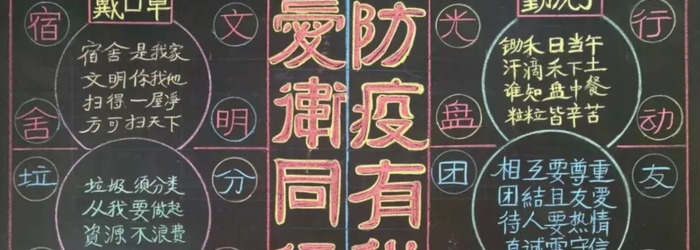 戴口罩
宿舍文明
宿舍是我家
文明你我他
扫得一屋淨
方可扫天下
垃分
垃圾須分类
从我要做起
資源不浪費
防疫有
愛衛同
勤洗手
光盘行动
锄禾日当午
汗滴禾下土
谁知盘中餐
粒粒皆辛苦
团友
相互要尊重
团结且友爱
待人要热情